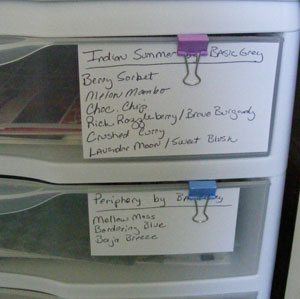 Indian Summer BASIC Grey
Berry Sorbet
Melon Mambo
Choc. Chip
Rich Razzleberry / Bravo Burgandy
Crushed Curry
Lavender Moon / Sweet Blush
Periphery by
Mellow Moss
Bordering Blue
Baja Breeze